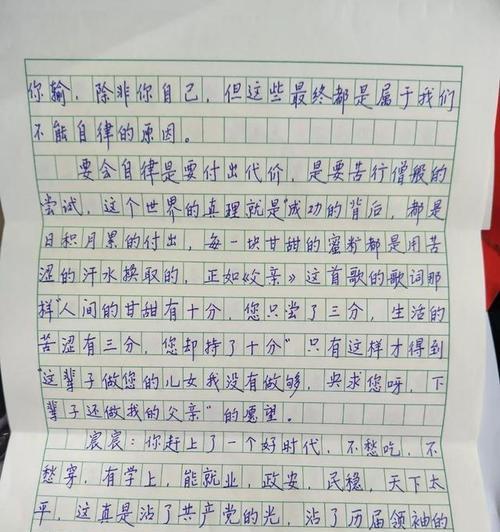 你输，除非你自己，但这些最终都是属于我们
不能自律的原因。
要会自律是要付出代价，是要苦行僧般的
尝试，这个世界的真理就是“成功的背后，都是
日积月累的付出，每一块甘甜的蜜都是用苦
涩的汗水换取的，正如《父亲》这首歌的歌词那
样“人间的甘甜有十分，您只尝了三分，生活的
苦涩有三分，您却持了十分”只有这样才得到
“这辈子做您的儿女我没有做够，央求您呀，下
辈子还做我的父亲”的愿望。
宸宸：你赶上了一个好时代，不愁吃，不
愁穿，有学上，能就业，政安，民稳，天下太
平，这真是沾了共产党的光，沾了历届领袖的